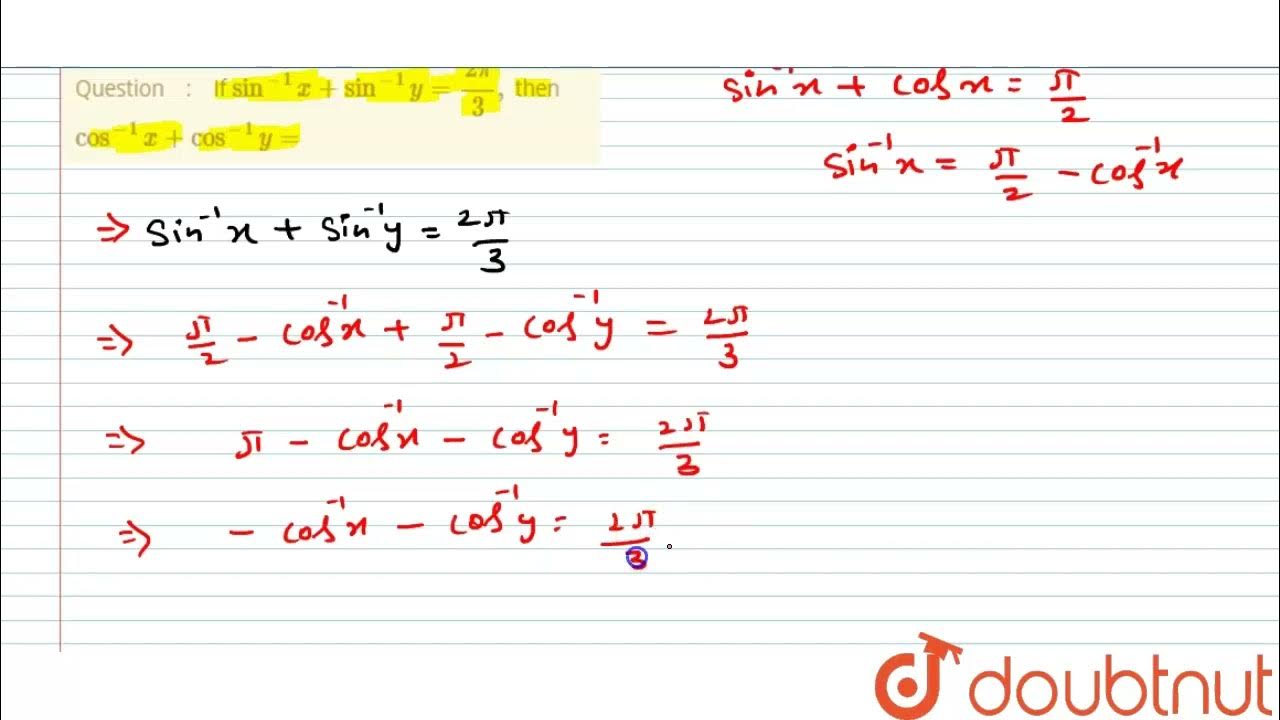 Question : If sin⁻¹ x + sin⁻¹ y = 2π/3, then
cos⁻¹ x + cos⁻¹ y =
sin⁻¹x + cos x = π/2
sin⁻¹x = π/2 - cos⁻¹x
=> sin⁻¹x + sin⁻¹y = 2π/3
=> π/2 - cos⁻¹x + π/2 - cos⁻¹y = 2π/3
=> π - cos⁻¹x - cos⁻¹y = 2π/3
=> - cos⁻¹x - cos⁻¹y = 2π/3
doubtnut